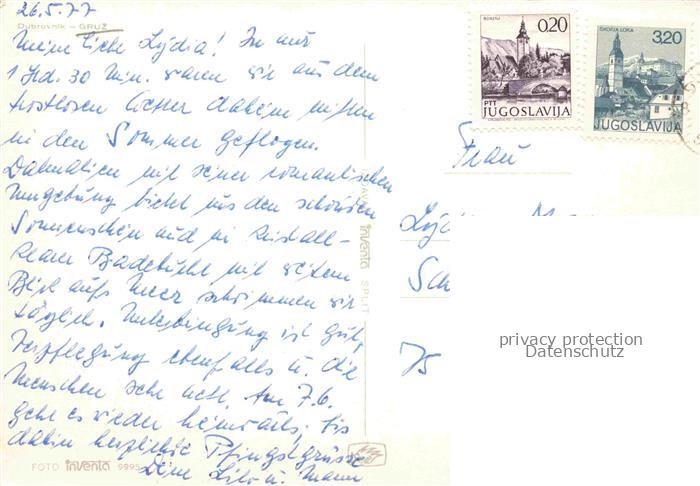 26.5.77
Dubrovnik – GRUŽ
Meine liebe Lydia! In nur
1 Std. 30 Min. waren wir aus dem
trostlosen Wetter daheim mitten
in den Sommer geflogen.
Dalmatien mit seiner romantischen
Umgebung bietet uns den schönsten
Sonnenschein und in kristall-
klarer Badebucht mit weitem
Blick aufs Meer schwimmen wir
täglich. Unterbringung ist gut,
Verpflegung ebenfalls u. die
Menschen sehr nett. Am 7.6.
geht es wieder heimwärts, bis
dahin herzliche Pfingstgrüsse
Deine Lilo u. Mann
FOTO inventa 9995
inventa SPLIT
BOHINJ
0,20
PTT
JUGOSLAVIJA
ŠKOFJA LOKA
3,20
JUGOSLAVIJA
Frau
75
privacy protection
Datenschutz